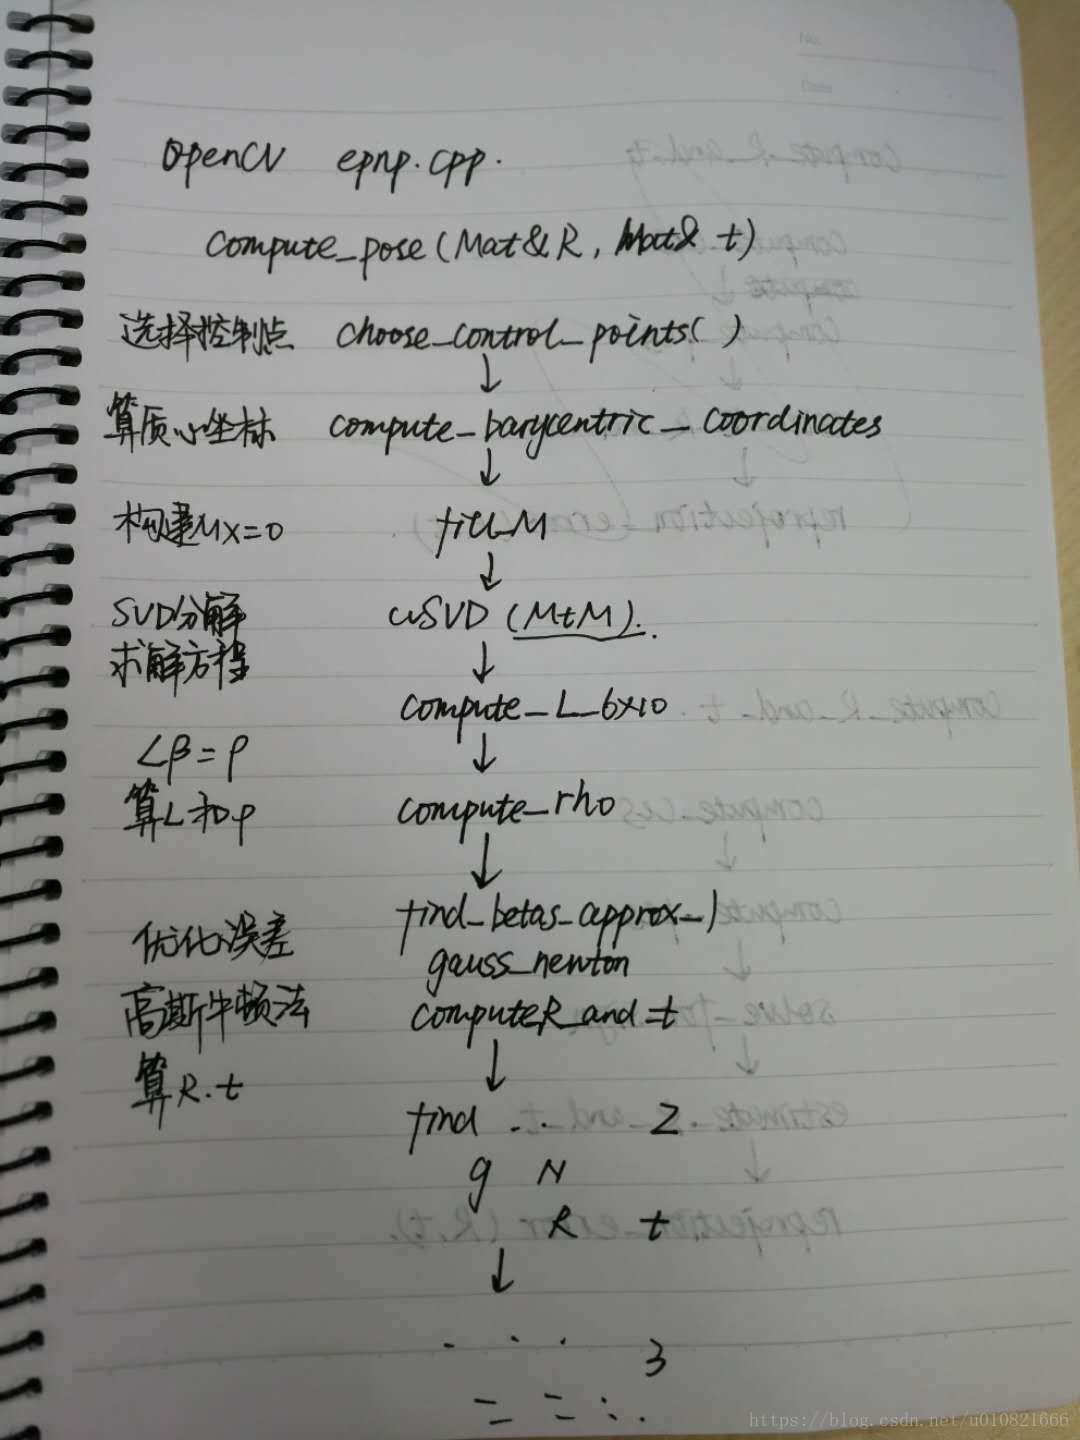 OpenCV epnp.cpp.
compute_pose(Mat&R, Mat& t)
选择控制点 choose_control_points( )
↓
算质心坐标 compute_barycentric_coordinates
↓
构建Mx=0 fill_M
↓
SVD分解 cvSVD (MtM).
求解方程 ↓
compute_L_6x10
Lβ=ρ ↓
算L和ρ compute_rho
↓
find_betas_approx_1
优化误差 gauss_newton
高斯牛顿法 computeR_and_t
算R.t ↓
find . . . 2
g N
R t
↓
. . . 3
https://blog.csdn.net/u010821666